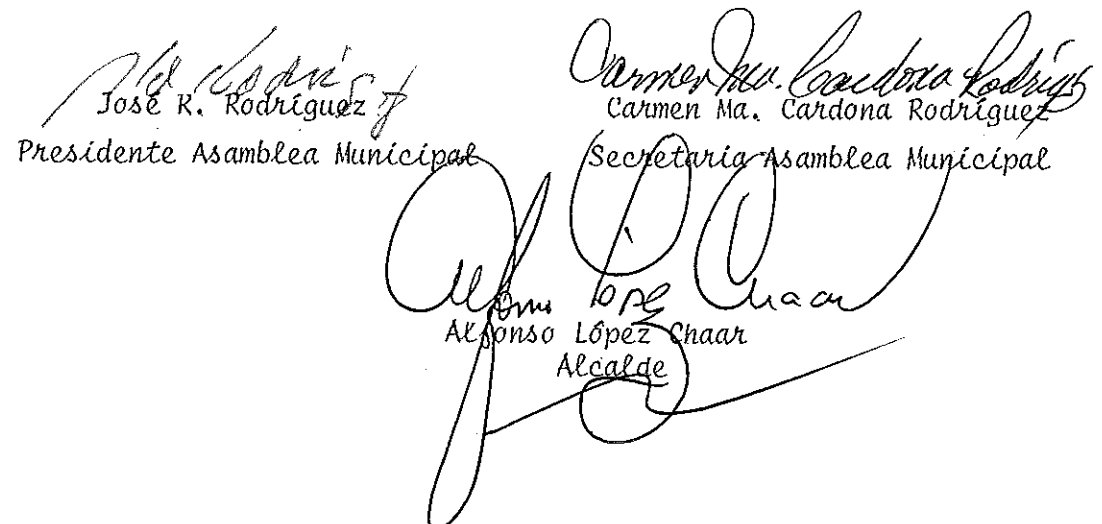 José R. Rodríguez
Presidente Asamblea Municipal
Carmen Ma. Cardona Rodríguez
Carmen Ma. Cardona Rodríguez
Secretaria Asamblea Municipal
Alfonso López Chaar
Alfonso López Chaar
Alcalde